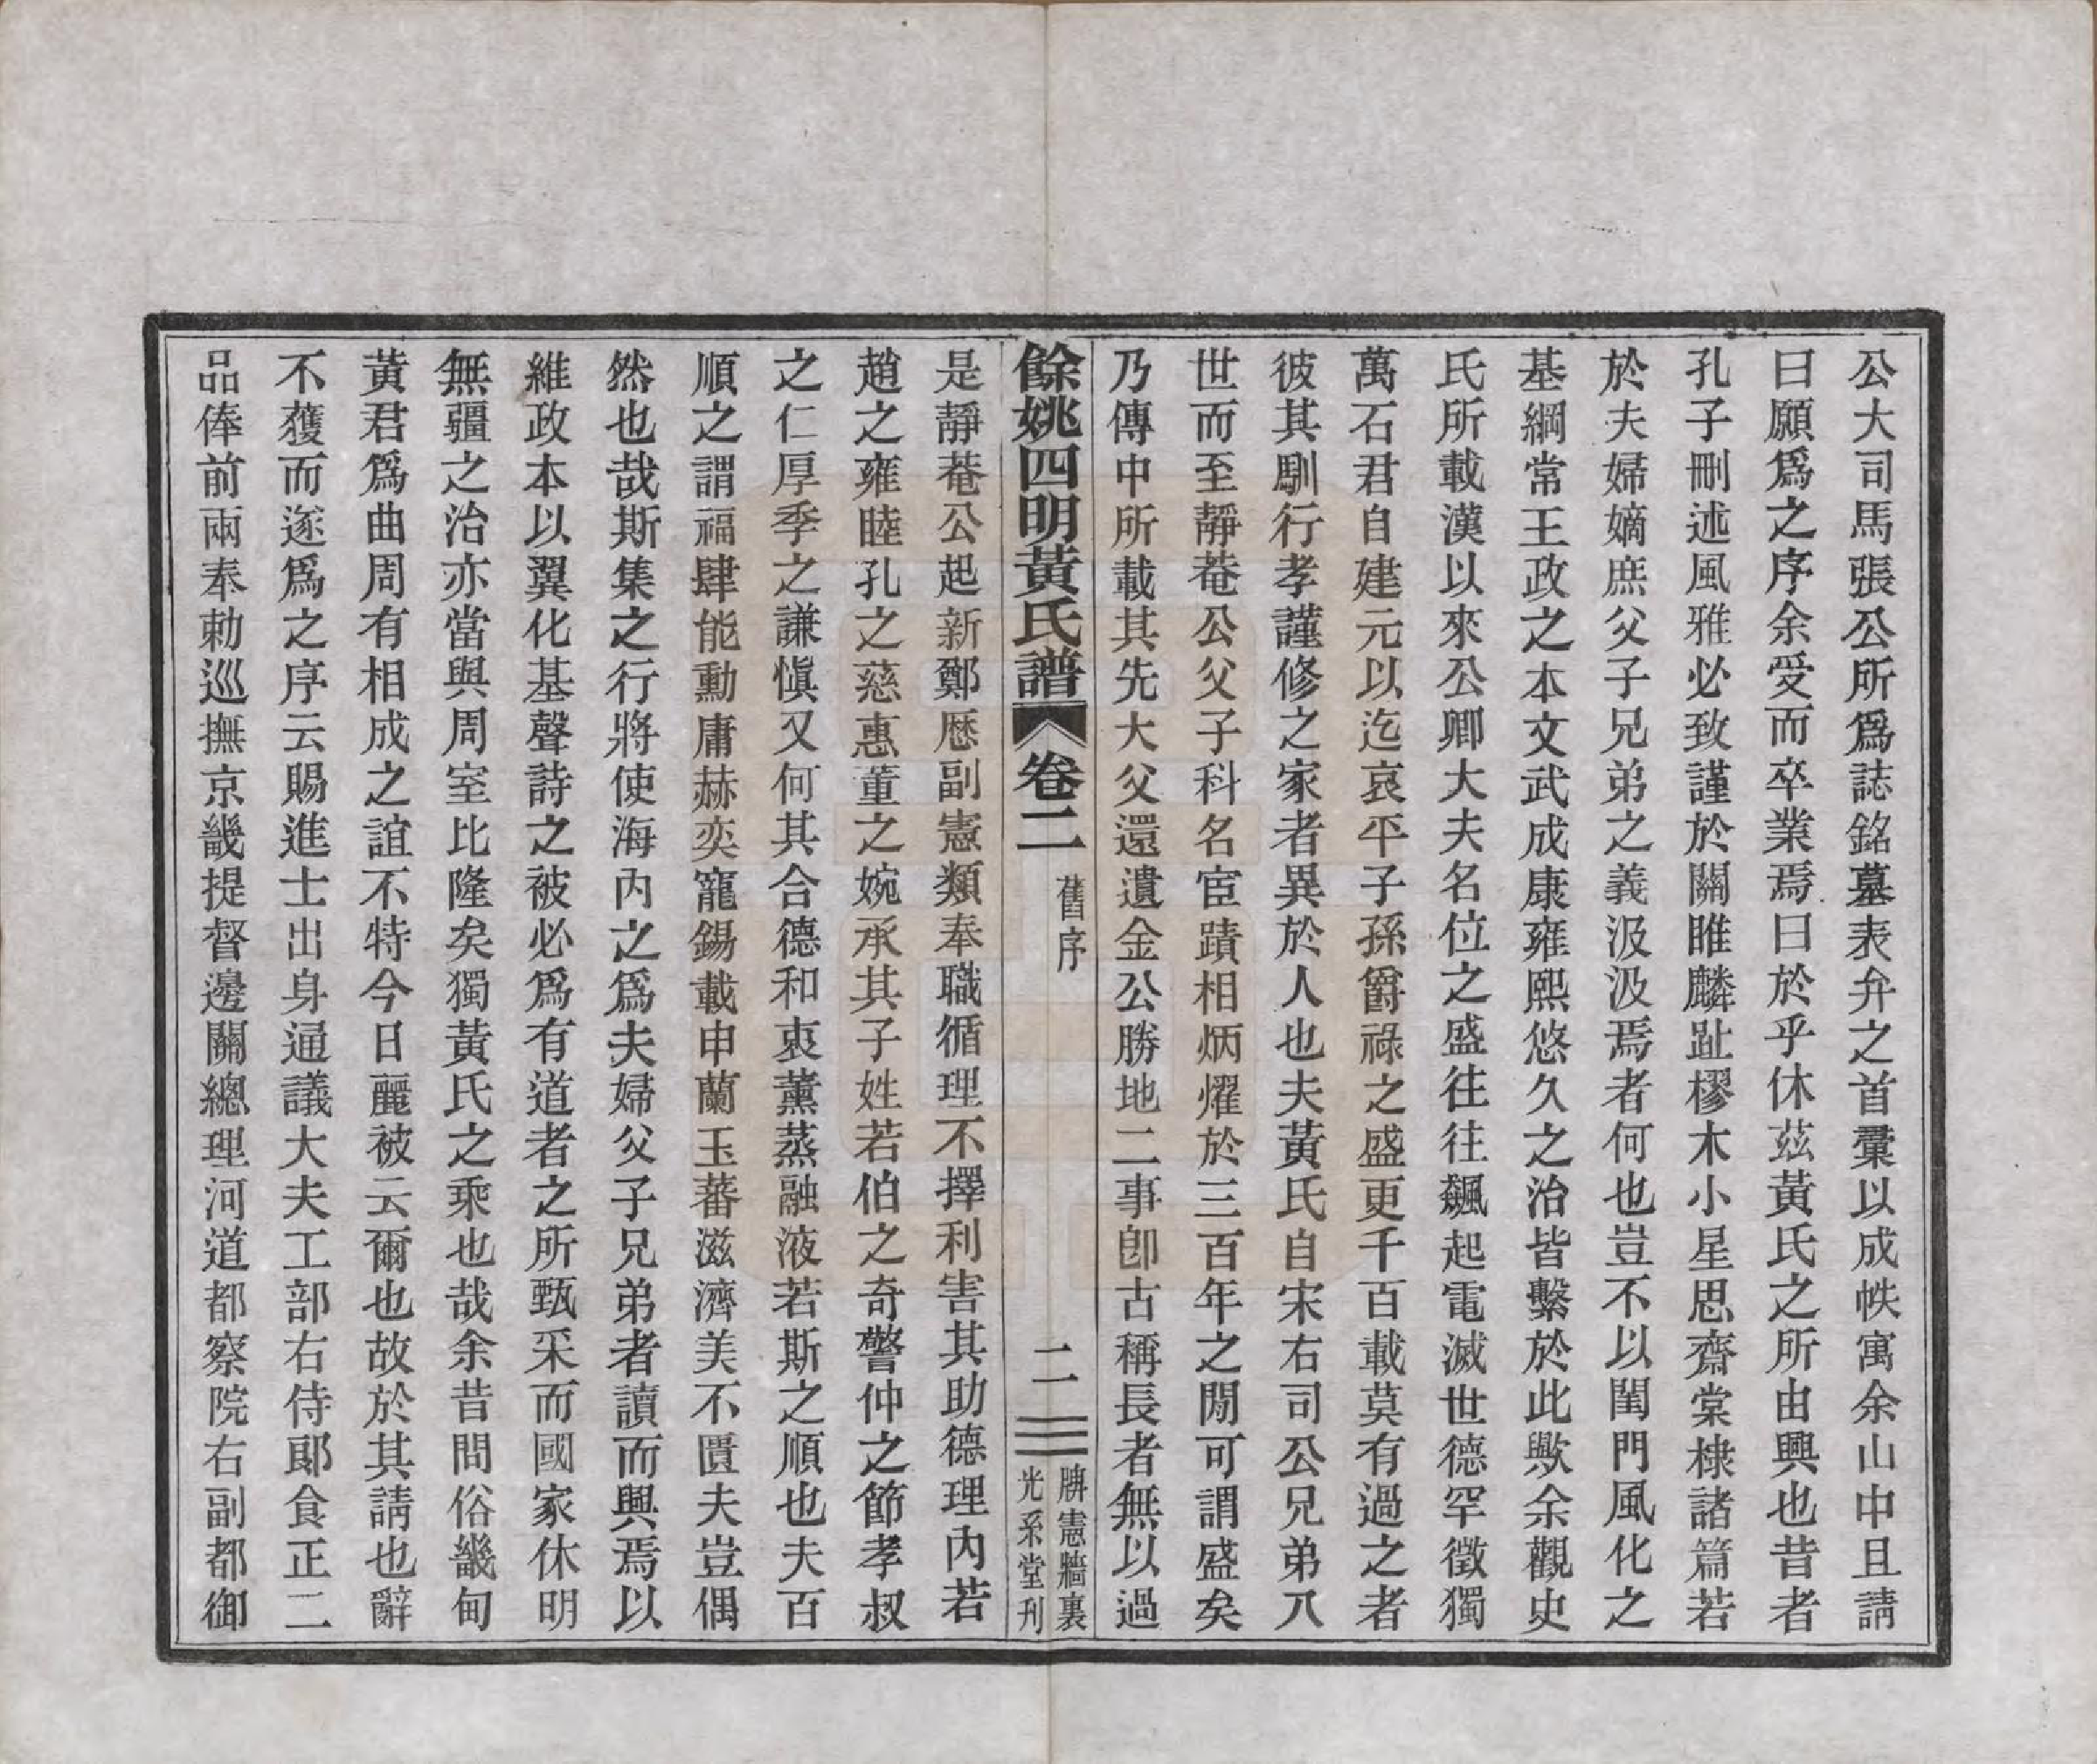 公大司馬張公所爲誌銘墓表弁之首彚以成帙寓余山中且請
曰願爲之序余受而卒業焉曰於乎休茲黃氏之所由興也昔者
孔子刪述風雅必致謹於關睢麟趾樛木小星思齋棠棣諸篇若
於夫婦嫡庶父子兄弟之義汲汲焉者何也豈不以閨門風化之
基綱常王政之本文武成康雍熙悠久之治皆繫於此歟余觀史
氏所載漢以來公卿大夫名位之盛往往飆起電滅世德罕徵獨
萬石君自建元以迄哀平子孫爵祿之盛更千百載莫有過之者
彼其馴行孝謹修之家者異於人也夫黃氏自宋右司公兄弟八
世而至靜菴公父子科名宦蹟相炳燿於三百年之閒可謂盛矣
乃傳中所載其先大父還遺金公勝地二事卽古稱長者無以過
餘姚四明黃氏譜 卷二 舊序 二 腗憲牆裏 光系堂刊
是靜菴公起新鄭歷副憲類奉職循理不擇利害其助德理內若
趙之雍睦孔之慈惠董之婉承其子姓若伯之奇警仲之節孝叔
之仁厚季之謙愼又何其合德和衷薰蒸融液若斯之順也夫百
順之謂福肆能勳庸赫奕寵錫載申蘭玉蕃滋濟美不匱夫豈偶
然也哉斯集之行將使海內之爲夫婦父子兄弟者讀而興焉以
維政本以翼化基聲詩之被必爲有道者之所甄采而國家休明
無疆之治亦當與周室比隆矣獨黃氏之乘也哉余昔問俗畿甸
黃君爲曲周有相成之誼不特今日麗被云爾也故於其請也辭
不獲而遂爲之序云賜進士出身通議大夫工部右侍郎食正二
品俸前兩奉勅巡撫京畿提督邊關總理河道都察院右副都御